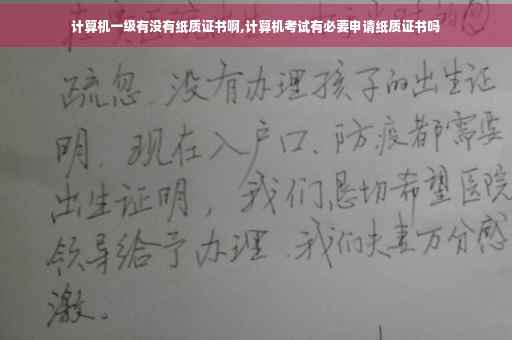 计算机一级有没有纸质证书啊,计算机考试有必要申请纸质证书吗
疏忽、没有办理孩子的出生证
明、现在入户口、防疫都需要
出生证明，我们恳切希望医院
领导给予办理、我们夫妻万分感
激。